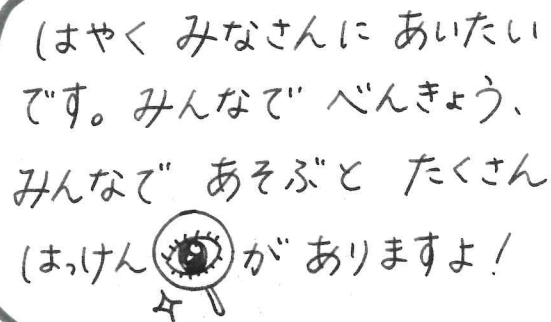 はやく みなさんに あいたい
です。みんなで べんきょう、
みんなで あそぶと たくさん
はっけん が ありますよ！